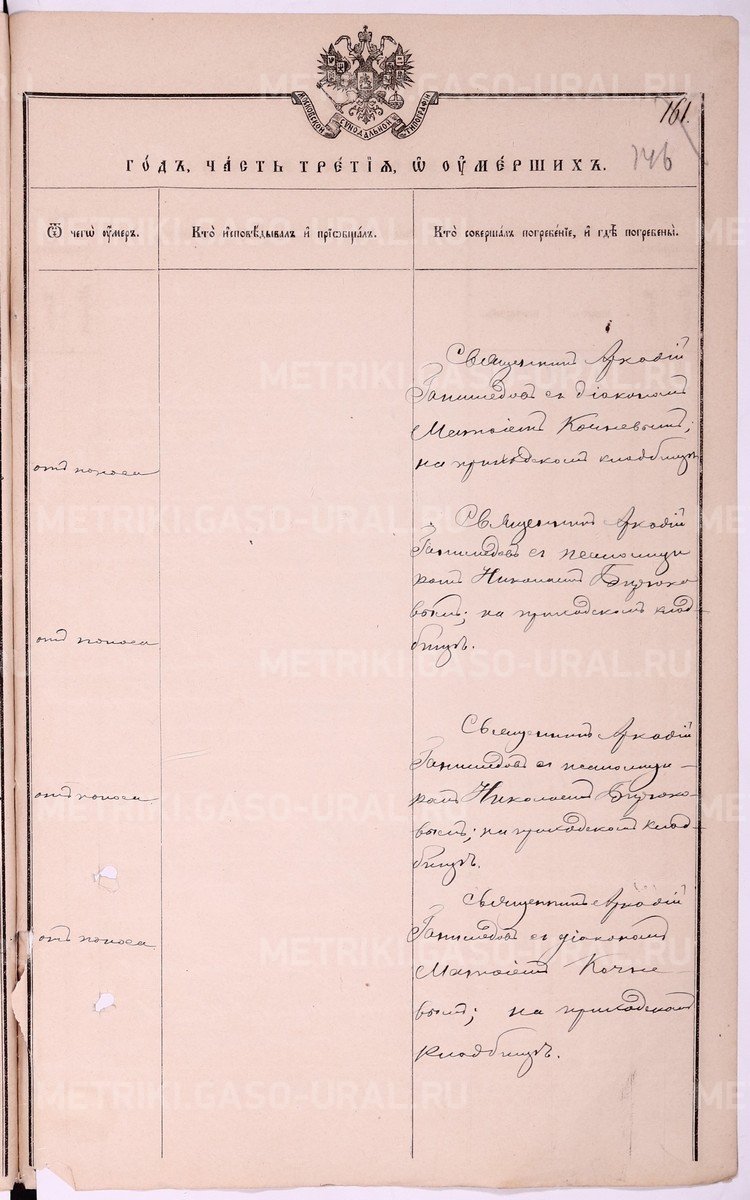 МОСКОВСКОЙ СѴНОДАЛЬНОЙ ТИПОГРАФІИ
161.
146
ГОДЪ, ЧАСТЬ ТРЕТІЯ, Ѡ ОУМЕРШИХЪ.
Ѿ чегѡ оумеръ.
Кто исповѣдывалъ и пріѡбщалъ.
Кто совершалъ погребеніе, и гдѣ погребены.
Священникъ Аркадій
Ганимедовъ съ діакономъ
Матѳіемъ Кочневымъ;
на приходскомъ кладбищѣ
отъ поноса
Священникъ Аркадій
Ганимедовъ съ псаломщи
комъ Николаемъ Бирюко
вымъ; на приходскомъ клад-
бищѣ.
отъ поноса
Священникъ Аркадій
Ганимедовъ съ псаломщи-
комъ Николаемъ Бирюко-
вымъ; на приходскомъ клад-
бищѣ.
отъ поноса
Священникъ Аркадій
Ганимедовъ съ діакономъ
Матѳіемъ Кочне-
вымъ; на приходскомъ
кладбищѣ.
отъ поноса
METRIKI.GASO-URAL.RU